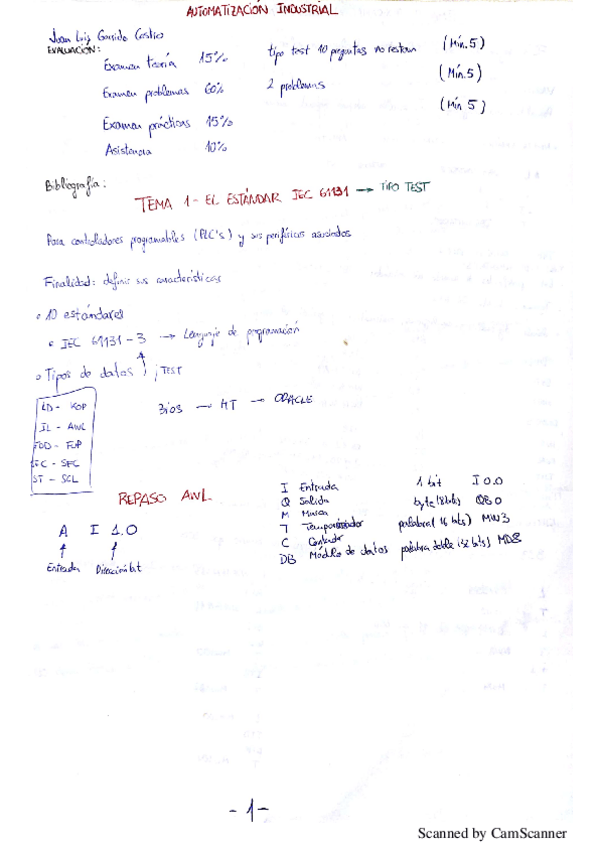 AUTOMATIZACIÓN INDUSTRIAL
Juan Luis Garrido Castro
EVALUACIÓN:
Examen teoría 15% tipo test 10 preguntas no restan (Mín. 5)
Examen problemas 60% 2 problemas (Mín. 5)
Examen prácticas 15% (Mín 5)
Asistencia 10%
Bibliografía:
TEMA 1 - EL ESTÁNDAR IEC 61131 → TIPO TEST
Para controladores programables (PLC's) y sus periféricos asociados
Finalidad: definir sus características
• 10 estándares
• IEC 61131 - 3 → Lenguaje de programación
• Tipos de datos ¡TEST
LD - KOP
IL - AWL
FBD - FUP
SFC - SFC
ST - SCL
→ HT → ORACLE
REPASO AWL
A I 1.0
Entrada Dirección bit
I Entrada 1 bit I 0.0
Q Salida byte (8 bits) QB0
M Marca
T Temporizador palabra (16 bits) MW3
C Contador
DB Módulo de datos palabra doble (32 bits) MD8
- 1 -
Scanned by CamScanner